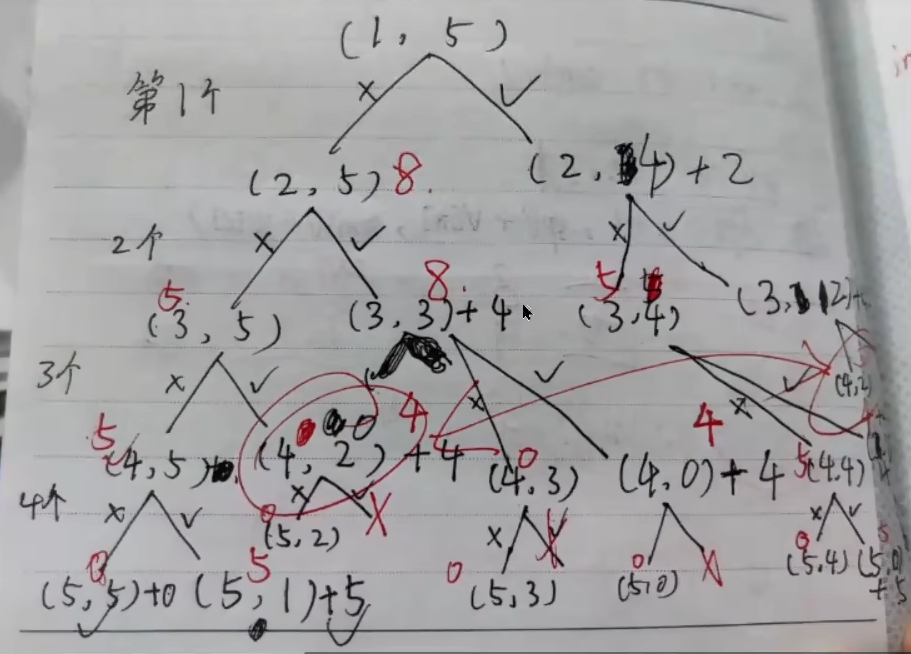 (1, 5)
第1个 × ✓
(2, 5) 8. (2, 4) + 2
2个 × ✓ × ✓
5. 8. 5
(3, 5) (3, 3) + 4 (3, 4) (3, 2)
3个 × ✓ × ✓ × ✓ (4, 2)
5 4 0 4 5
(4, 5) (4, 2) + 4 (4, 3) (4, 0) + 4 (4, 4)
4个 × ✓ × ✓ × × ✓ × ✓
0 (5, 2) 0 (5, 4) (5, 0) + 5
0 5 0 0
(5, 5) + 0 (5, 1) + 5 (5, 3) (5, 0)
✓ ✓